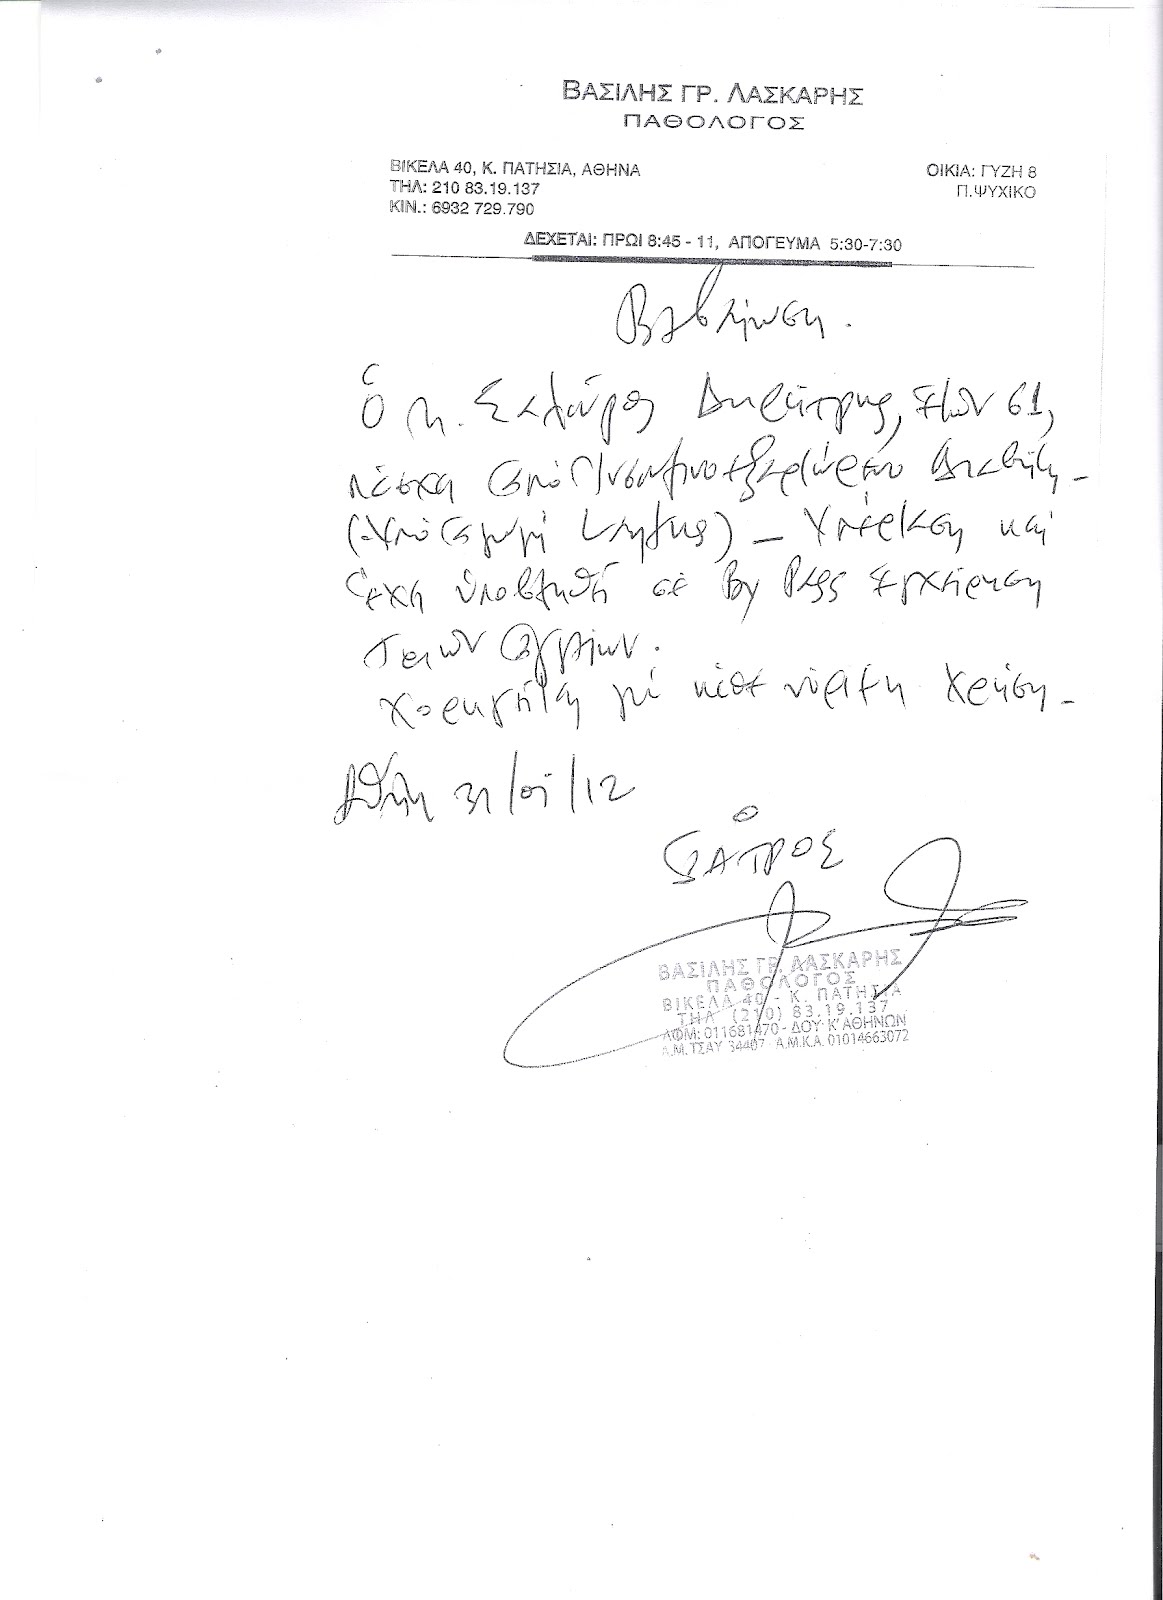 ΒΑΣΙΛΗΣ ΓΡ. ΛΑΣΚΑΡΗΣ
ΠΑΘΟΛΟΓΟΣ
ΒΙΚΕΛΑ 40, Κ. ΠΑΤΗΣΙΑ, ΑΘΗΝΑ
ΤΗΛ: 210 83.19.137
ΚΙΝ.: 6932 729.790
ΟΙΚΙΑ: ΓΥΖΗ 8
Π.ΨΥΧΙΚΟ
ΔΕΧΕΤΑΙ: ΠΡΩΙ 8:45 - 11, ΑΠΟΓΕΥΜΑ 5:30-7:30
Βεβαίωση.
Ὁ κ. Δημήτρης, ἐτῶν 61,
πάσχει ἀπό Ἰνσουλινοεξαρτώμενο Διαβήτη -
- Υπέρταση καί
ἔχει ὑποβληθῆ σέ By Pass ἐγχείρηση
τριῶν ἀγγείων.
Χορηγεῖται γιά κάθε νόμιμη χρήση -
Ἀθήνα 31/01/12
Ὁ
ΙΑΤΡΟΣ
ΒΑΣΙΛΗΣ ΓΡ. ΛΑΣΚΑΡΗΣ
ΠΑΘΟΛΟΓΟΣ
ΒΙΚΕΛΑ 40 - Κ. ΠΑΤΗΣΙΑ
ΤΗΛ. (210) 83.19.137
ΑΦΜ: 011681470 - ΔΟΥ Κ' ΑΘΗΝΩΝ
Α.Μ. ΤΣΑΥ 34407 Α.Μ.Κ.Α. 01014663072